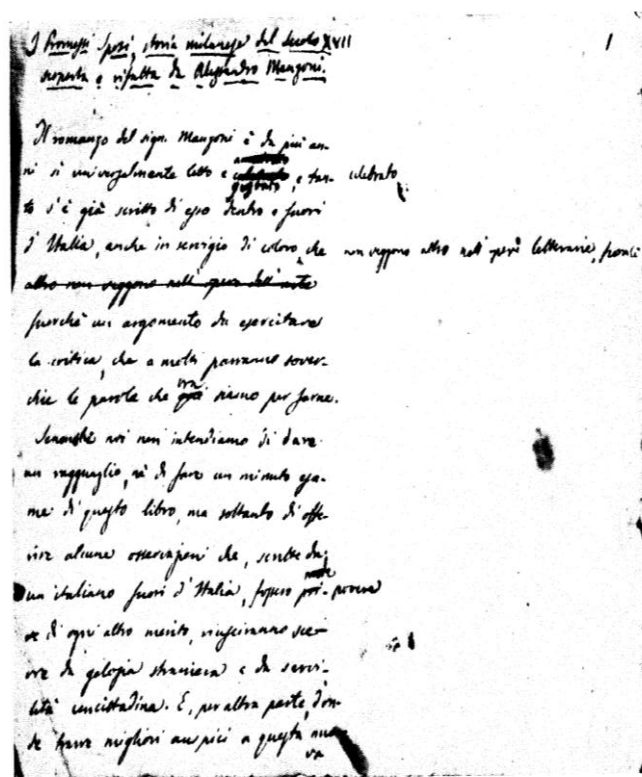 I Promessi Sposi, storia milanese del secolo XVII
scoperta e rifatta da Alessandro Manzoni.
1
Il romanzo del sign. Manzoni è da più an-
ni sì universalmente letto e gustato, e tan- celebrato
to s'è già scritto di esso dentro e fuori
d'Italia, anche in servigio di coloro che non veggono altro nell'opere letterarie,
altro non veggono nell'opera dell'arte
fuorchè un argomento da esercitare
la critica, che a molti parranno sover-
chie le parole che ora siamo per farne.
Senonchè noi non intendiamo di dare
un ragguaglio, nè di fare un minuto esa-
me di questo libro, ma soltanto di offe-
rire alcune osservazioni che, scritte da
un italiano fuori d'Italia, fossero povere
di ogni altro merito, riusciranno sce-
vre da gelosia straniera e da servi-
lità concittadina. E, per altra parte, don-
de trarre migliori auspici a questa nuo-
va